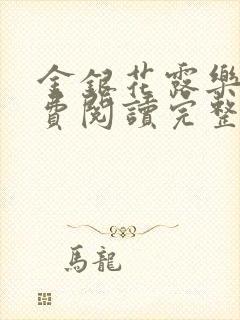 金銀花露樂
費閱讀完整
馬龍